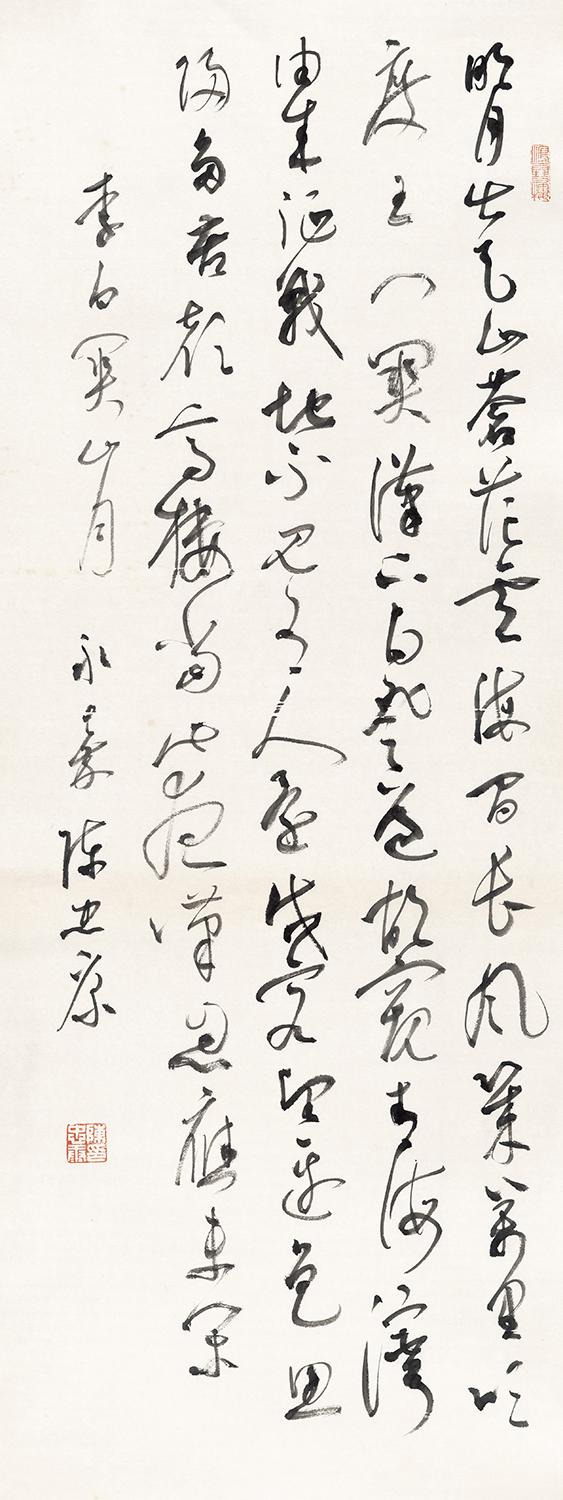 明月出天山蒼茫雲海間長風幾萬里吹
度玉門關漢下白登道胡窺青海灣
由來征戰地不見有人還戍客望邊色思
歸多苦顏高樓當此夜嘆息應未閑
李白關山月 永嘉陳忠康